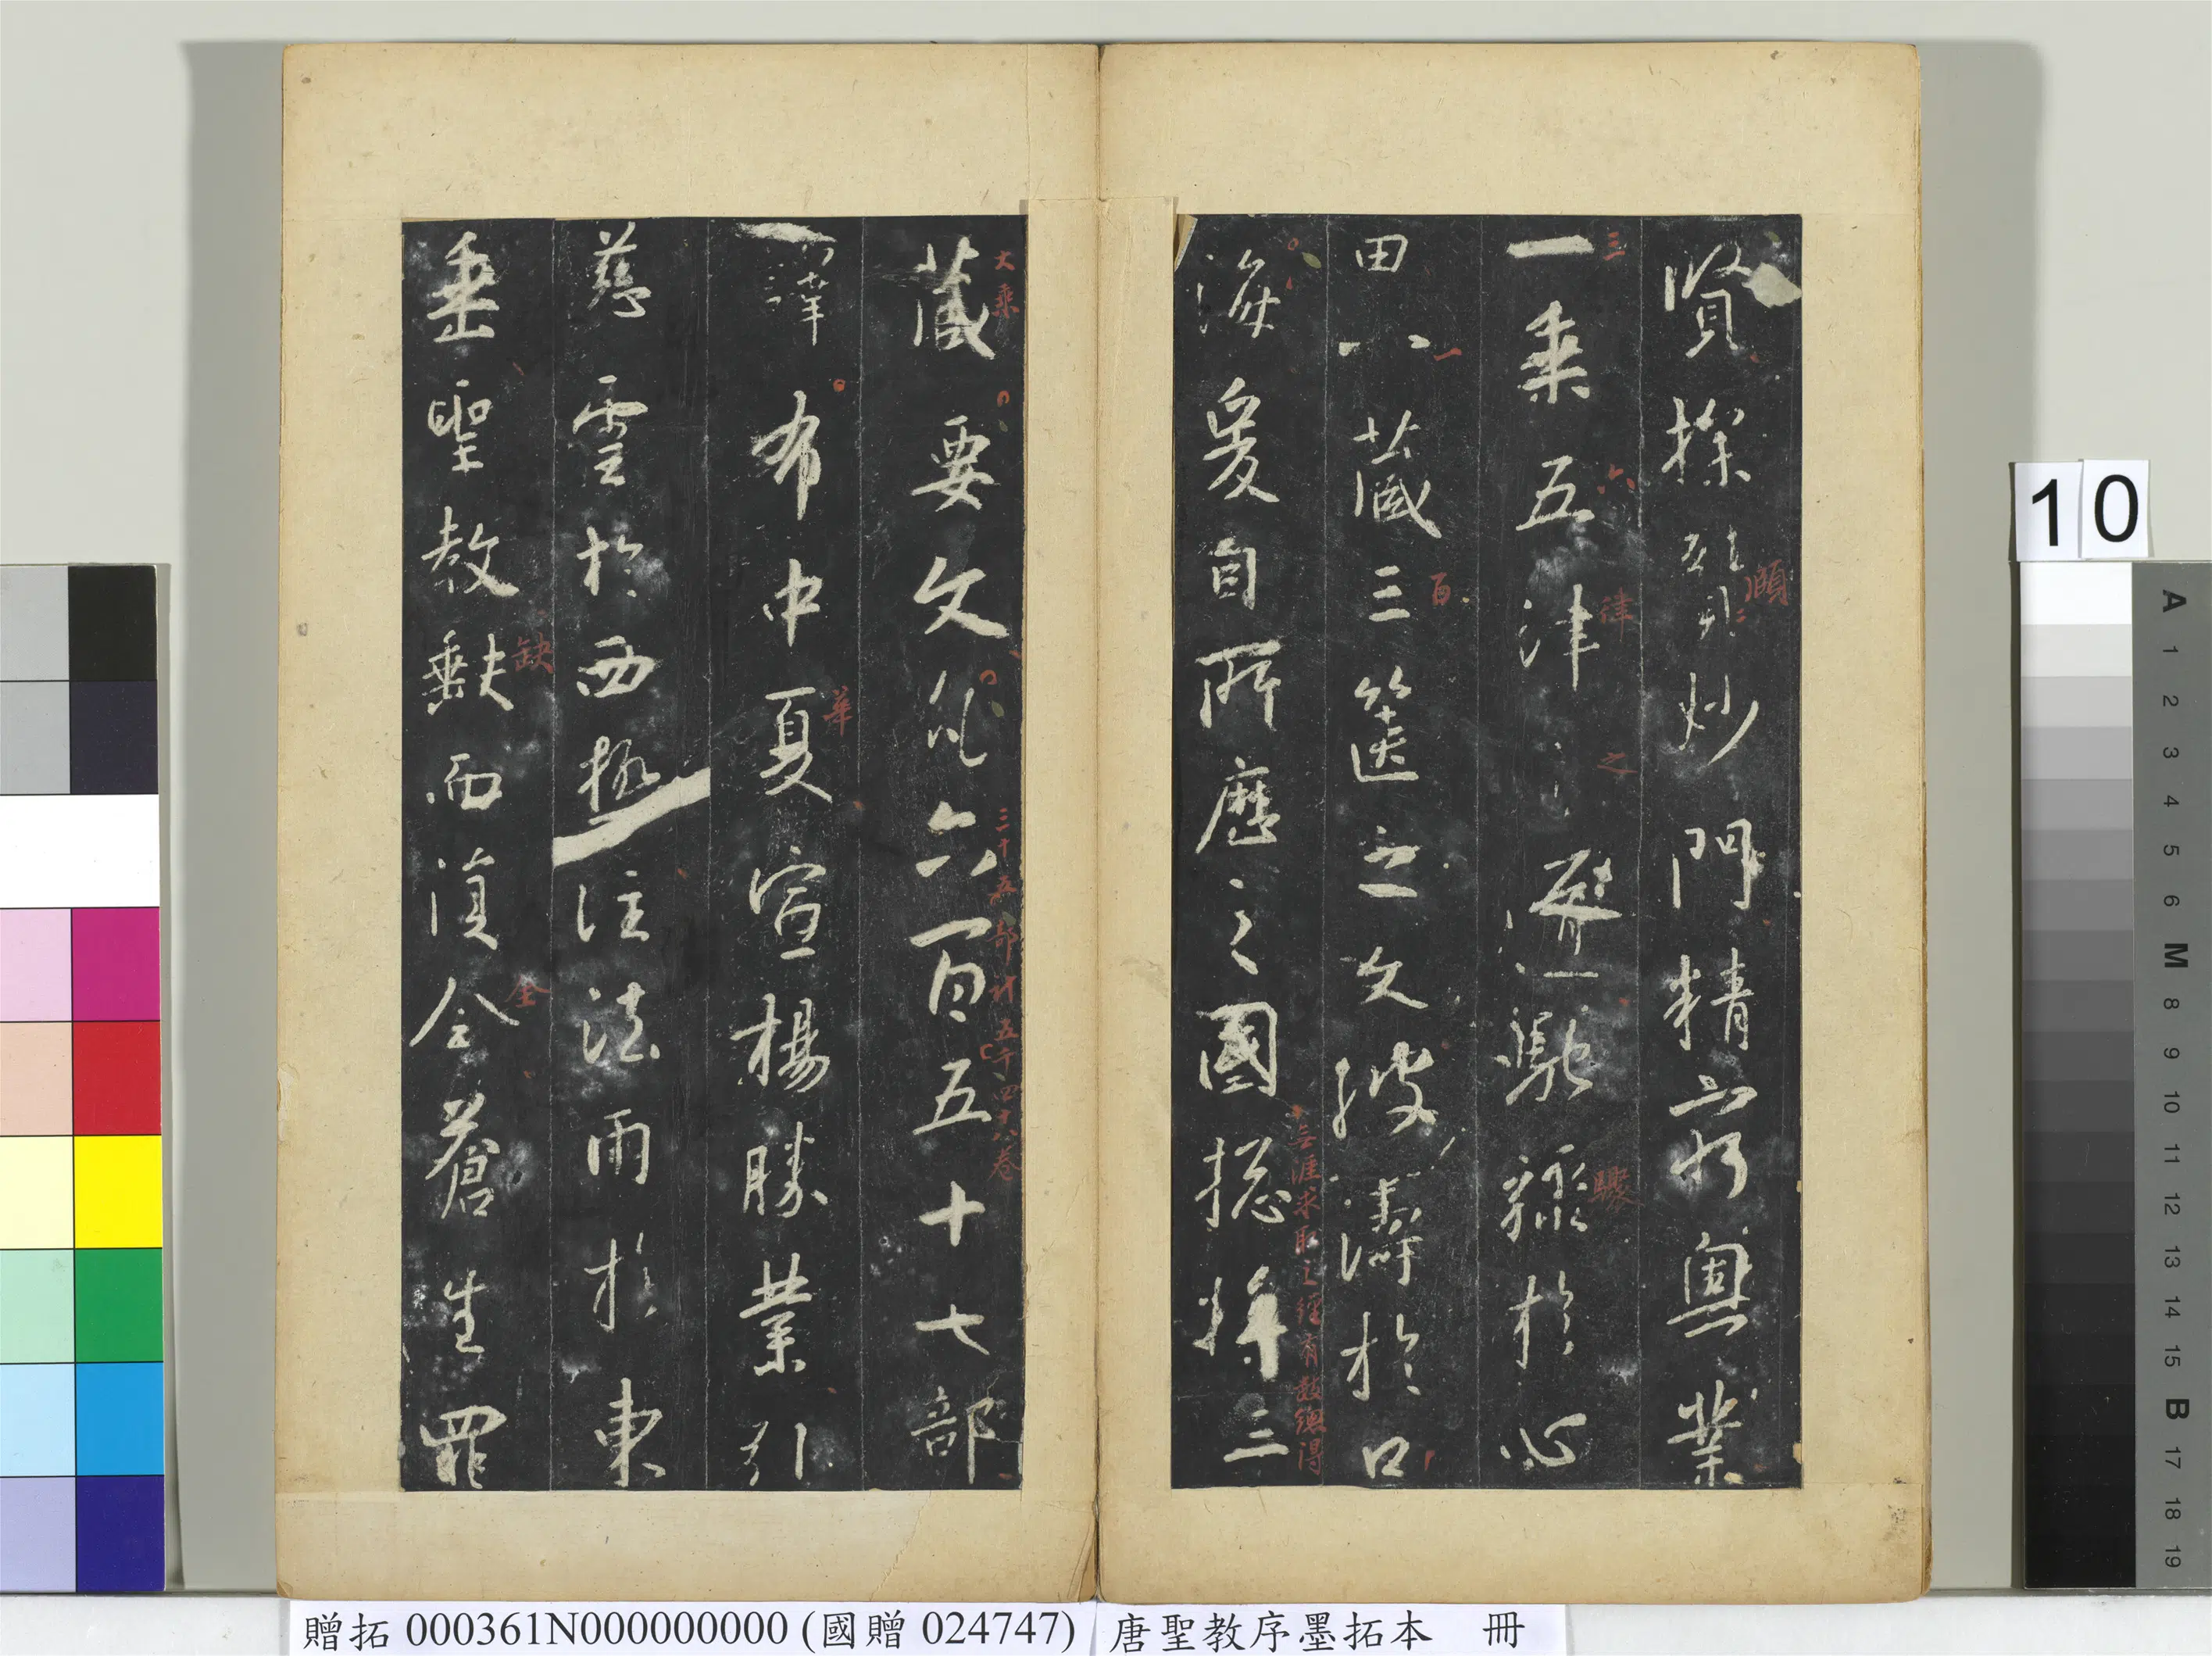 賢探賾妙門精窮奧業
一乘五津之道馳驟於心
田八藏三篋之文波濤於口
海爰自所歷之國摠將三
藏要文凡六百五十七部
譯布中夏宣楊勝業引
慈雲於西極注法雨於東
垂聖教缺而復全蒼生罪
三
六
律
之
驟
一
百
無涯求取之經有數總得
大乘
三十五部計五千四十八卷
華
缺
全
10
A 1 2 3 4 5 6 M 8 9 10 11 12 13 14 15 B 17 18 19
贈拓 000361N000000000 (國贈 024747) 唐聖教序墨拓本 冊